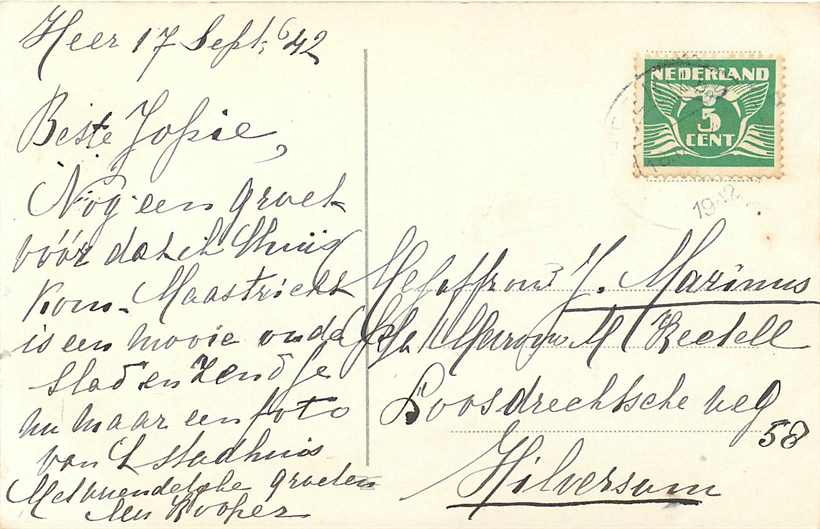 Heer 17 Sept. '42
Beste Jopie,
Nog een groet
vóór dat ik thuis
kom. Maastricht
is een mooie oude
stad en zend je
nu maar een foto
van 't stadhuis
Met vriendelijke groeten
NEDERLAND
5
CENT
1942
Mejuffrouw J. Marinus
Mevrouw M
Loosdrechtsche weg
58
Hilversum